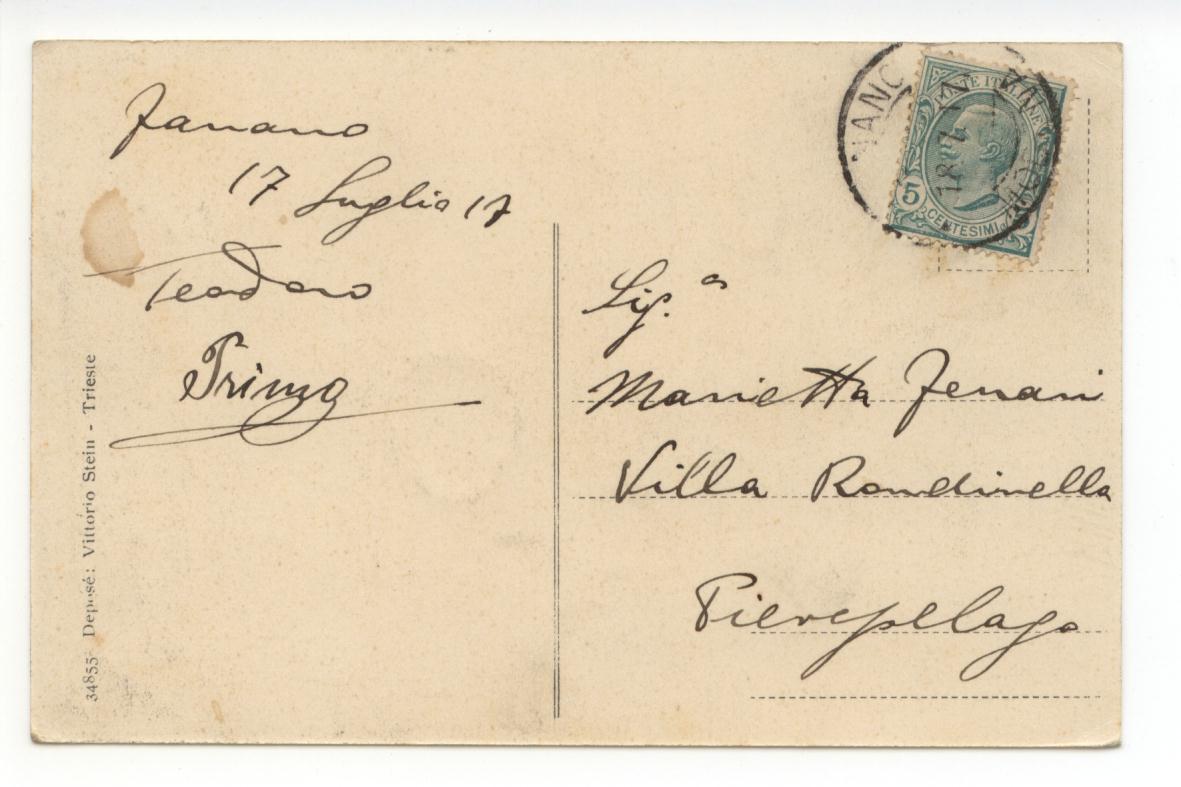 Fanano
17 Luglio 17
Teodoro
Primo
34855 Deposé: Vittorio Stein - Trieste
POSTE ITALIANE
5
CENTESIMI
18 7 17
Sig.a
Marietta Ferrari
Villa Rondinella
Pievepelago